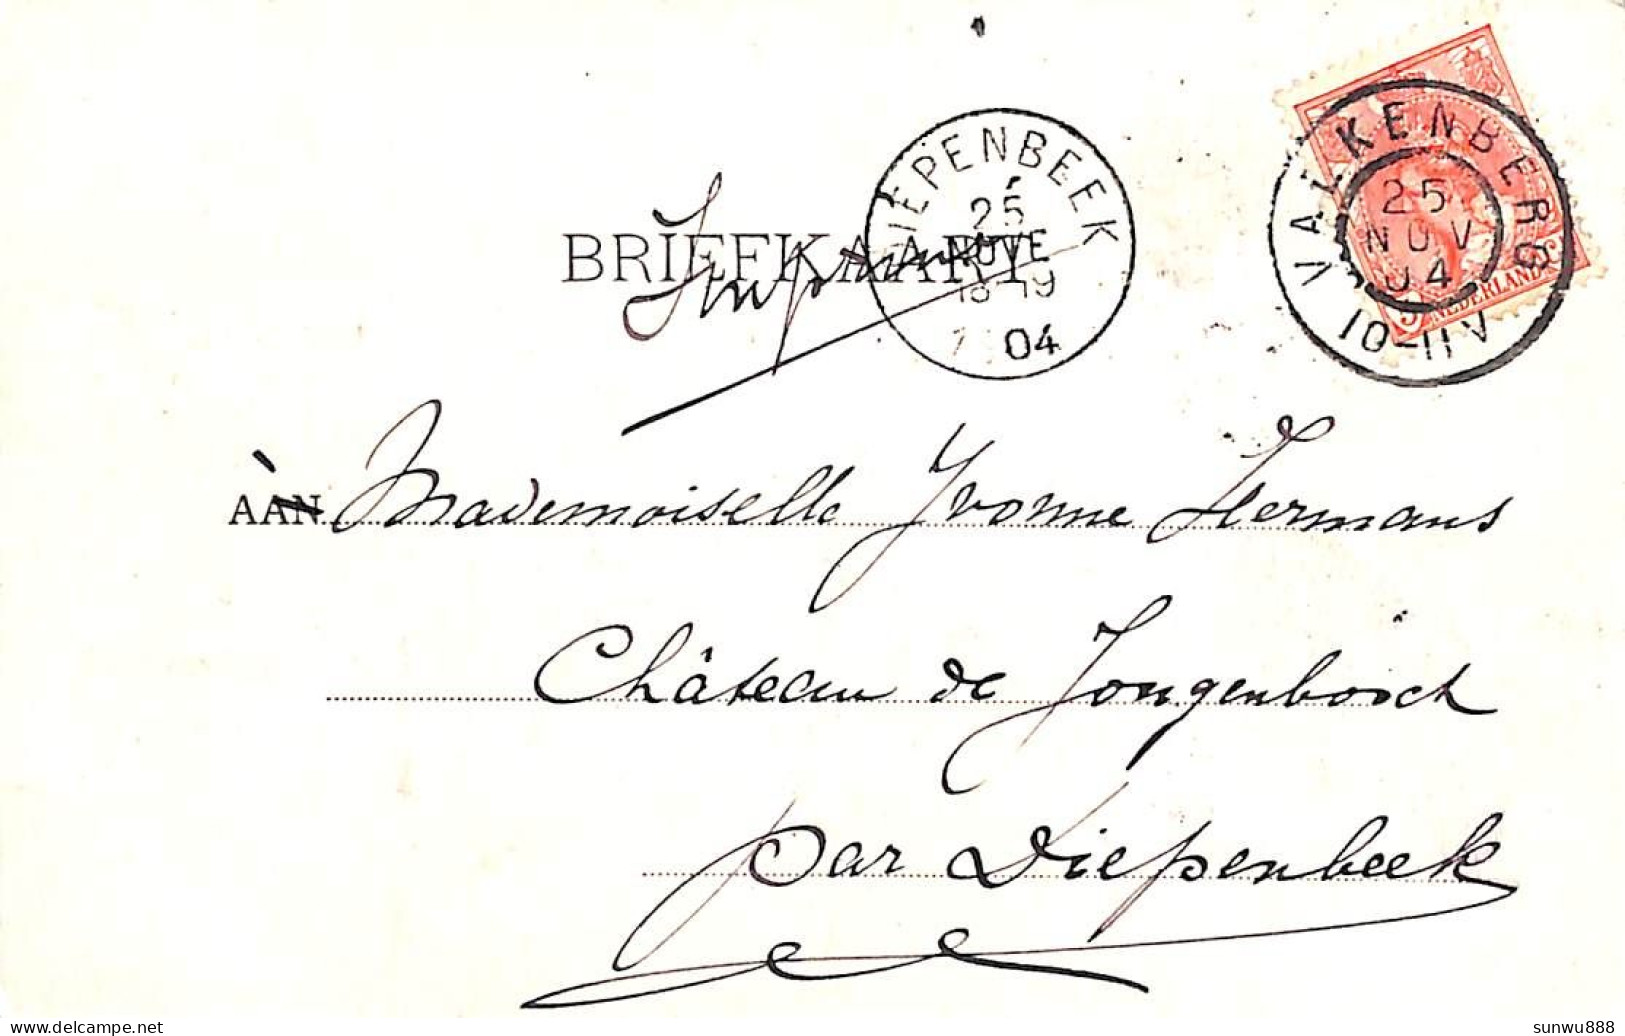 BRIEFKAART
Imprimé
DIEPENBEEK
25
NOVE
18-19
04
VALKENBERG
25
NOV
04
10-11V
5
NEDERLAND
AAN Mademoiselle Yvonne Hermans
Château de Jongenbosch
par Diepenbeek
www.delcampe.net
sunwu888